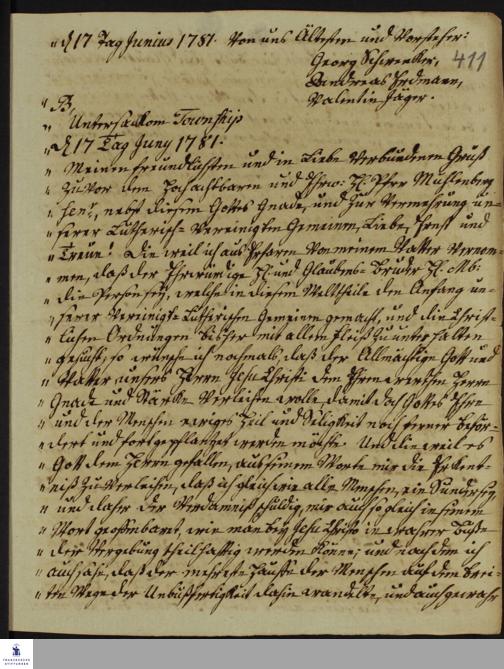 "d 17 Tag Junius 1781. Von uns Ältesten und Vorsteher:
Georg Schrenker,
411
Andreas Erdmann,
Valentin Jäger.
" B,
" Township
" d 17 Tag Juny 1781.
" Meinen freundlichsten und in Liebe verbundenen Gruß
" zuvor dem Hochachtbaren und Ehrw: H. Pfrr Muhlenberg
" nebst diesem Gottes Gnade, und zur Vermehrung un-
" serer Lutherisch Vereinigten Gemeinen, Liebe, Ernst und
" Treue! Die weil ich aus Erfaren von meinem Vatter vernom-
" men, daß der Ehrwürdige H. und Glaubens-Bruder H. Mb:
" die Person sey, welche in diesem Weltheile den Anfang un-
" serer Vereinigt-Lutherischen Gemeinen gemacht, und die Christ-
" lichen Ordnungen bisher mit allem Fleiß zu unterhalten
" gesucht; so wünsche ich nochmals, daß der Allmächtige Gott und
" Vatter unsers Herrn Jesu Christi dem Herrn
" Gnade und Stärke verleihen wolle, damit doch Gottes Ehre
" und der Menschen ewiges Heil und Seligkeit noch ferner beför-
" dert und fortgepflanzet werden möchte. Und die weil es
" Gott dem Herrn gefallen, aus seinem Worte mir die Erkent-
" niß zu verleihen, daß ich gleich wie alle Menschen, ein Sünder sey
" und daher der Verdamniß schuldig, mir auch so gleich in seinem
" Wort geoffenbaret, wie man bey Jesu Christo in wahrer Buße
" der Vergebung theilhafftig werden könne; und nachdem ich
" auch sahe, daß der mehreste Hauffe der Menschen auf dem brei-
" ten Wege der Unbußfertigkeit dahin wandelte, und auch gewahr
FRANCKESCHE
STIFTUNGEN